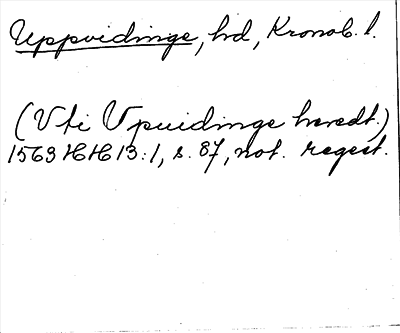 Uppvidinge, hrd, Kronob. l.
(Vti Vpuidinge heredt.)
1563 HH 13:1, s. 87, not. regest.